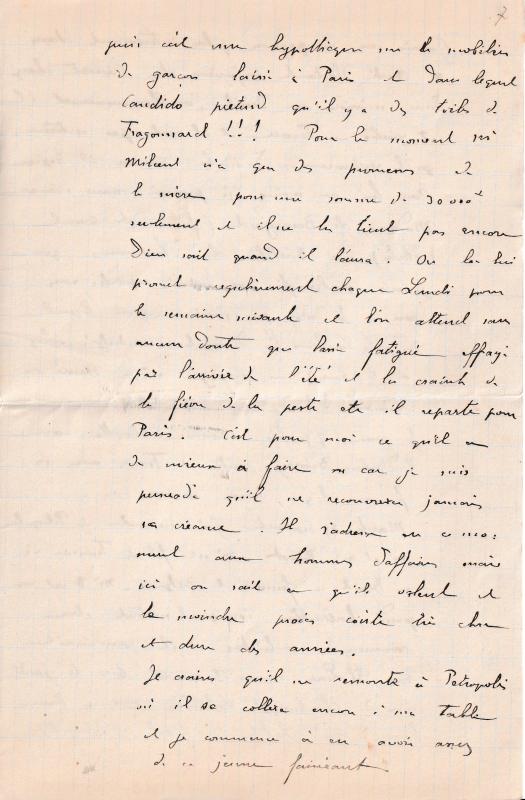 7
puis c'est une hypothèque sur le mobilier
de garçon laissé à Paris et dans lequel
Candido prétend qu'il y a des toiles de
Fragonnard !!! Pour le moment
n'a que des promesses de
la mère pour une somme de 30 000
seulement et il ne les tient pas encore
Dieu sait quand il l'aura. On les lui
promet régulièrement chaque Lundi pour
la semaine suivante et l'on attend sans
aucun doute que lassé fatigué effrayé
par l'arrivée de l'été et la crainte de
la fièvre de la peste etc il reparte pour
Paris. C'est pour moi ce qu'il a
de mieux à faire car je suis
persuadé qu'il ne recouvrera jamais
sa créance. Il s'adresse en ce mo:
ment aux hommes d'affaires mais
ici on sait ce qu'ils valent et
le moindre procès coûte très cher
et dure des années.
Je crains qu'il ne remonte à Petropolis
où il se collera encore à ma table
et je commence à en avoir assez
de ce jeune fainéant